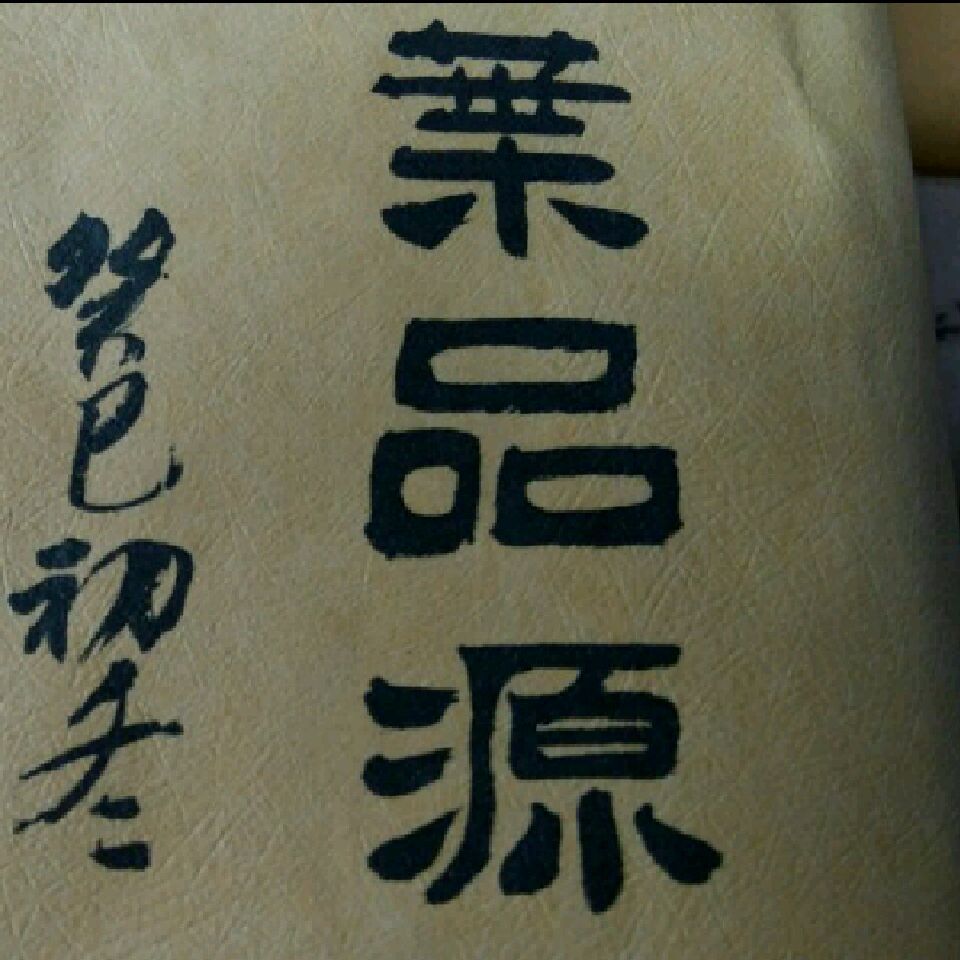 葉品源
癸巳初冬